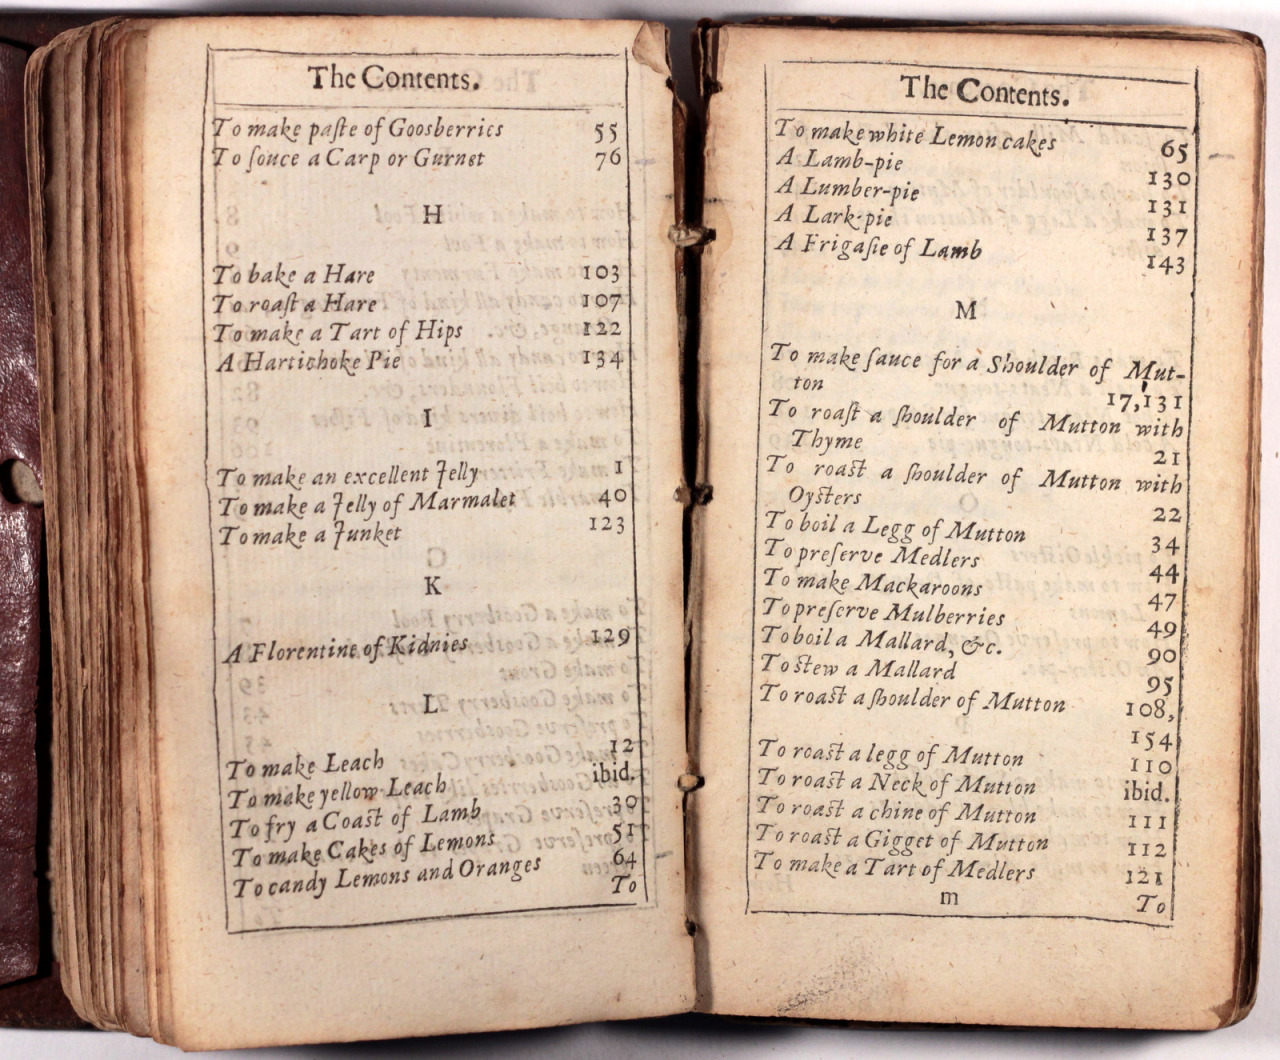 The Contents.
To make paſte of Goosberries 55
To ſouce a Carp or Gurnet 76
H
To bake a Hare 103
To roaſt a Hare 107
To make a Tart of Hips 122
A Hartichoke Pie 134
I
To make an excellent Jelly 1
To make a Jelly of Marmalet 40
To make a Junket 123
K
A Florentine of Kidnies 129
L
To make Leach 12
To make yellow Leach ibid.
To fry a Coast of Lamb 30
To make Cakes of Lemons 51
To candy Lemons and Oranges 64
To
The Contents.
To make white Lemon cakes 65
A Lamb-pie 130
A Lumber-pie 131
A Lark-pie 137
A Frigaſie of Lamb 143
M
To make ſauce for a Shoulder of Mut-
ton 17,131
To roaſt a ſhoulder of Mutton with
Thyme 21
To roast a ſhoulder of Mutton with
Oysters 22
To boil a Legg of Mutton 34
To preſerve Medlers 44
To make Mackaroons 47
To preſerve Mulberries 49
To boil a Mallard, &c. 90
To stew a Mallard 95
To roast a ſhoulder of Mutton 108,
154
To roast a legg of Mutton 110
To roast a Neck of Mutton ibid.
To roast a chine of Mutton 111
To roast a Gigget of Mutton 112
To make a Tart of Medlers 121
m To